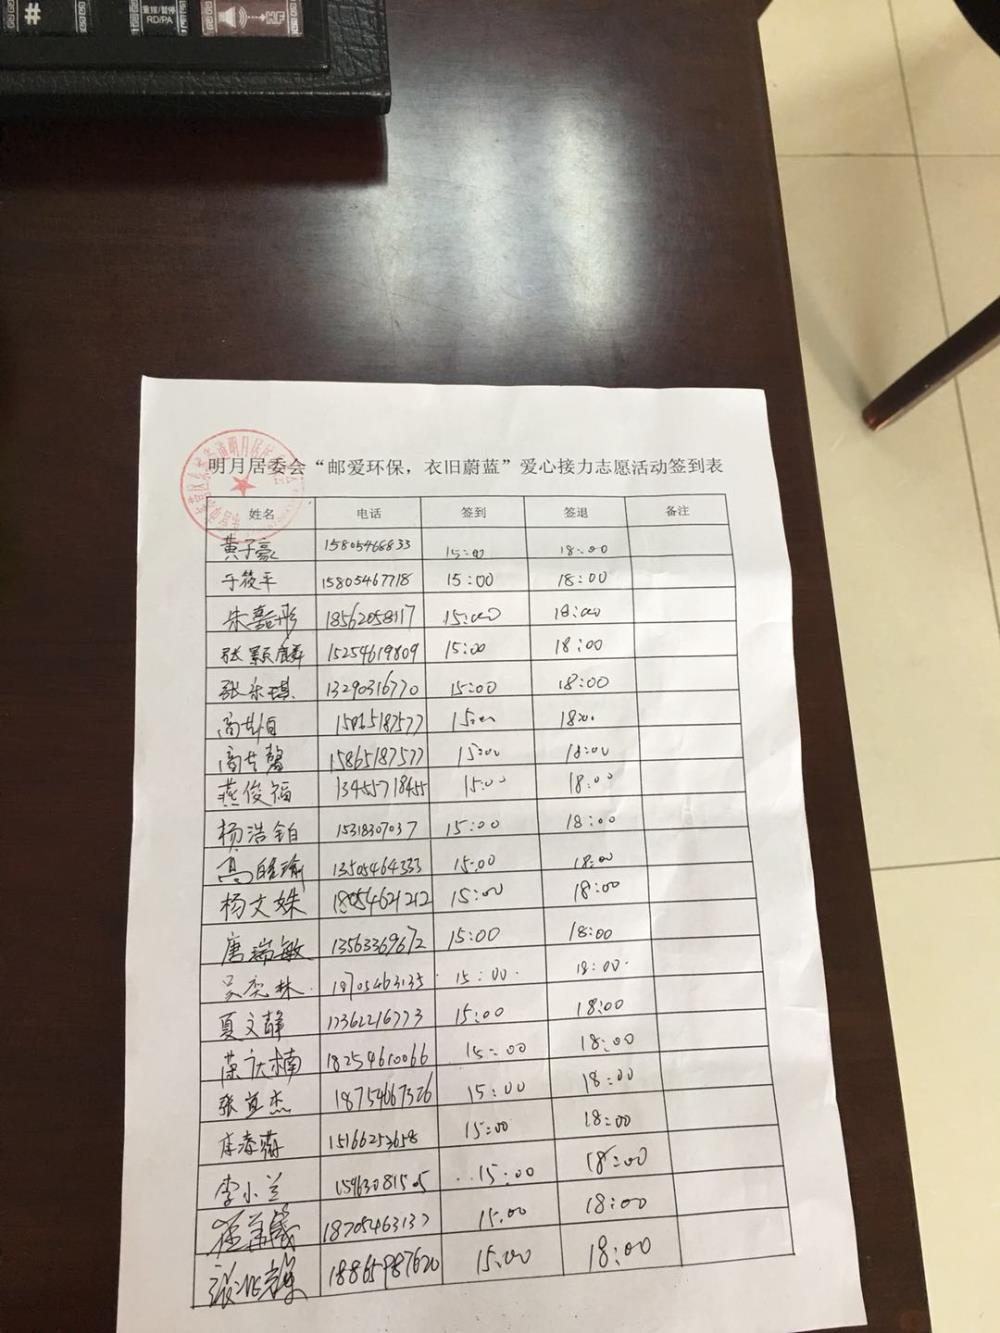 #
重拨/暂停
RD/PA
HF
明月居委会“邮爱环保，衣旧蔚蓝”爱心接力志愿活动签到表
姓名 电话 签到 签退 备注
黄子豪 15805468833 15:00 18:00
于筱平 15805467718 15:00 18:00
朱嘉彤 18562058117 15:00 18:00
张颢麟 15254619809 15:00 18:00
张乐琪 13290316770 15:00 18:00
15:00 18:00
高艺馨 15865187577 15:00 18:00
燕俊福 13455718455 15:00 18:00
杨浩铂 15318307037 15:00 18:00
13505464333 15:00 18:00
杨文姝 18054621212 15:00 18:00
唐瑞敏 13563369672 15:00 18:00
吴奕林 18705463135 15:00 18:00
夏文静 15:00 18:00
荣庆楠 18254610066 15:00 18:00
张宜杰 18754667326 15:00 18:00
15166253658 15:00 18:00
李小兰 15963081505 15:00 18:00
18705463137 15:00 18:00
18865987620 15:00 18:00